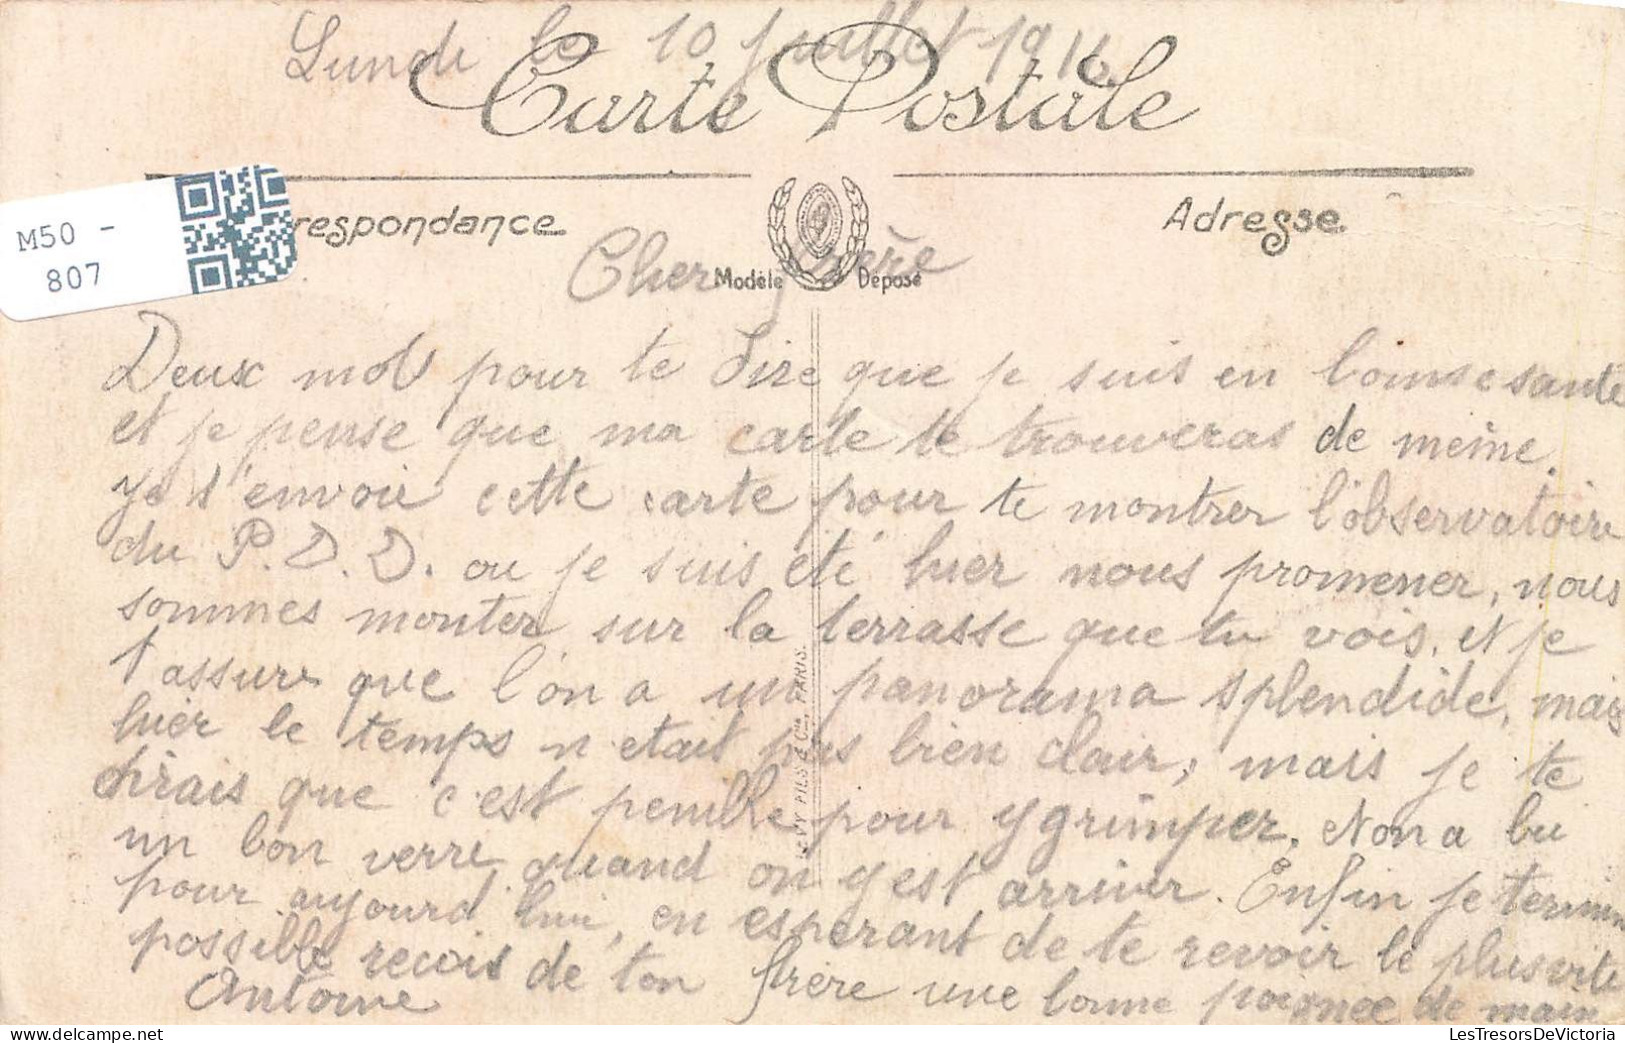 Lundi le 10 juillet 1916
Carte Postale
M50 -
807
respondance
Adresse
Cher frère
Modèle Déposé
Deux mots pour te dire que je suis en bonne santé
et je pense que ma carte te trouveras de meme.
Je t'envoie cette carte pour te montrer l'observatoire
du P.D.D. ou je suis été hier nous promener, nous
sommes monter sur la terrasse que tu vois, et je
t'assure que l'on a un panorama splendide, mais
hier le temps n'etait pas bien clair, mais je te
dirais que c'est penible pour y grimper. et on a bu
un bon verre quand on y est arriver. Enfin je termine
pour aujourd'hui, en esperant de te revoir le plus vite
possible recois de ton frère une bonne poignee de main
Antoine
LEVY FILS & Cie, PARIS.
LesTresorsDeVictoria.com